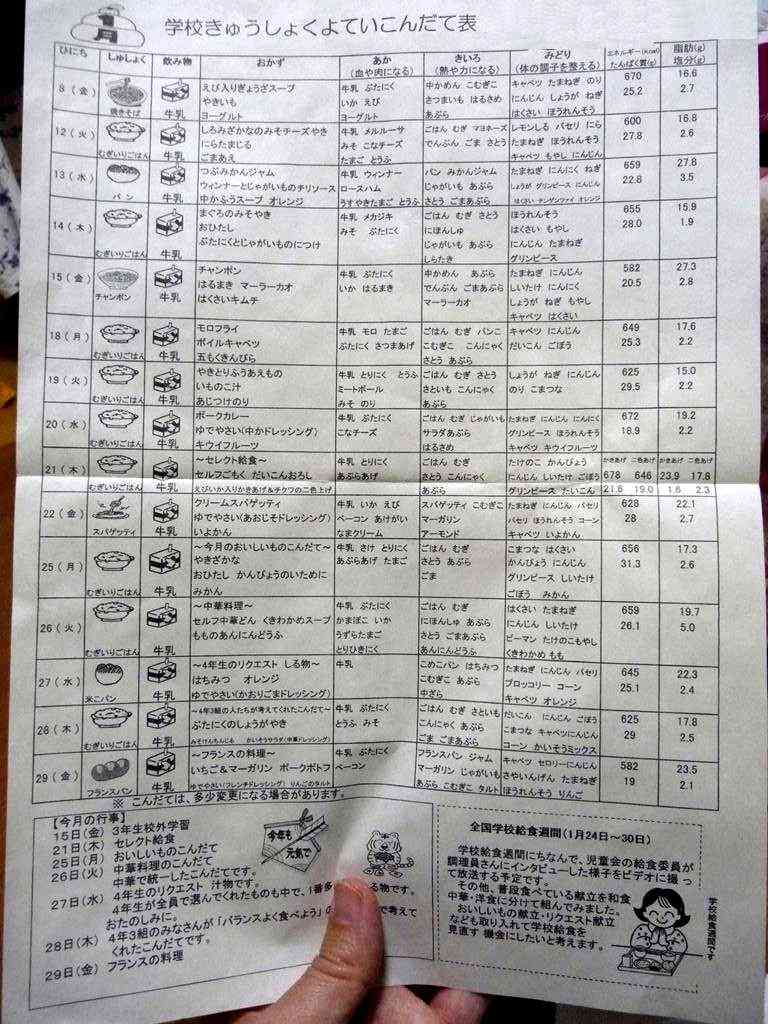 1月
学校きゅうしょくよていこんだて表
ひにち しゅしょく 飲み物 おかず あか(血や肉になる) きいろ(熱や力になる) みどり(体の調子を整える) エネルギー(Kcal) たんぱく質(g) 脂肪(g) 塩分(g)
8(金) 焼きそば 牛乳 えび入りぎょうざスープ 牛乳 ぶたにく 中かめん こむぎこ キャベツ たまねぎ のり 670 16.6
やきいも いか えび さつまいも はるさめ にんじん しょうが ねぎ 25.2 2.7
ヨーグルト ヨーグルト あぶら はくさい ほうれんそう
12(火) むぎいりごはん 牛乳 しろみざかなのみそチーズやき 牛乳 メルルーサ ごはん むぎ マヨネーズ レモンしる パセリ にら 600 16.8
にらたまじる みそ こなチーズ でんぷん ごま さとう たまねぎ ほうれんそう 27.8 2.6
ごまあえ たまご とうふ キャベツ もやし にんじん
13(水) パン 牛乳 つぶみかんジャム 牛乳 ウィンナー パン みかんジャム たまねぎ にんにく ねぎ 659 27.8
ウィンナーとじゃがいものチリソース ロースハム じゃがいも あぶら しょうが グリンピース にんじん 22.8 3.5
中かふうスープ オレンジ うずやきたまご とうふ さとう ごまあぶら はくさい チンゲンツァイ オレンジ
14(木) むぎいりごはん 牛乳 まぐろのみそやき 牛乳 メカジキ ごはん むぎ さとう ほうれんそう 655 15.9
おひたし みそ ぶたにく にほんしゅ はくさい もやし 28.0 1.9
ぶたにくとじゃがいものにつけ じゃがいも あぶら にんじん たまねぎ
しらたき グリンピース
15(金) チャンポン 牛乳 チャンポン 牛乳 ぶたにく 中かめん あぶら たまねぎ にんじん 582 27.3
はるまき マーラーカオ いか はるまき でんぷん ごまあぶら しいたけ にんにく 20.5 2.8
はくさいキムチ マーラーカオ しょうが ねぎ もやし
キャベツ はくさい
18(月) むぎいりごはん 牛乳 モロフライ 牛乳 モロ たまご ごはん むぎ パンこ キャベツ にんじん 649 17.6
ボイルキャベツ ぶたにく さつまあげ こむぎこ こんにゃく だいこん ごぼう 25.3 2.2
五もくきんぴら さとう あぶら
19(火) むぎいりごはん 牛乳 やきとりふうあえもの 牛乳 とりにく とうふ ごはん むぎ さとう しょうが ねぎ にんじん 625 15.0
いものこ汁 ミートボール さといも こんにゃく のり こまつな 29.5 2.2
あじつけのり みそ のり あぶら
20(水) むぎいりごはん 牛乳 ポークカレー 牛乳 ぶたにく ごはん むぎ じゃがいも たまねぎ にんじん にんにく 672 19.2
ゆでやさい(中かドレッシング) こなチーズ サラダあぶら グリンピース ほうれんそう 18.9 2.2
キウイフルーツ はるさめ キャベツ キウイフルーツ
21(木) むぎいりごはん 牛乳 〜セレクト給食〜 牛乳 とりにく ごはん むぎ たけのこ かんぴょう かきあげ 二色あげ かきあげ 二色あげ
セルフごもく だいこんおろし あぶらあげ さとう こんにゃく にんじん しいたけ ごぼう 678 646 23.9 17.8
えびいか入りかきあげ＆チクワの二色上げ あぶら グリンピース だいこん 21.6 19.0 1.6 2.3
22(金) スパゲッティ 牛乳 クリームスパゲッティ 牛乳 いか えび スパゲッティ こむぎこ たまねぎ にんじん パセリ 628 22.1
ゆでやさい(あおじそドレッシング) ベーコン あけがい マーガリン パセリ ほうれんそう コーン 28 2.7
いよかん なまクリーム アーモンド キャベツ いよかん
25(月) むぎいりごはん 牛乳 〜今月のおいしいものこんだて〜 牛乳 さけ とりにく ごはん むぎ こまつな はくさい 656 17.3
やきざかな あぶらあげ たまご さとう あぶら かんぴょう にんじん 31.3 2.6
おひたし かんぴょうのいために ごま グリンピース しいたけ
みかん ごぼう みかん
26(火) むぎいりごはん 牛乳 〜中華料理〜 牛乳 ぶたにく ごはん むぎ はくさい たまねぎ 659 19.7
セルフ中華どん くきわかめスープ かまぼこ いか にほんしゅ あぶら にんじん しいたけ 26.1 5.0
もものあんにんどうふ うずらたまご さとう ごまあぶら ピーマン たけのこ もやし
とりひきにく あんにんどうふ くきわかめ もも
27(水) 米こパン 牛乳 〜4年生のリクエスト しる物〜 牛乳 こめこパン はちみつ たまねぎ にんじん パセリ 645 22.3
はちみつ オレンジ こむぎこ あぶら ブロッコリー コーン 25.1 2.4
ゆでやさい(かおりごまドレッシング) 中ざら キャベツ オレンジ
28(木) むぎいりごはん 牛乳 〜4年3組の人たちが考えてくれたこんだて〜 牛乳 ぶたにく ごはん むぎ さといも だいこん にんじん ごぼう 625 17.8
ぶたにくのしょうがやき とうふ みそ こんにゃく あぶら こまつな キャベツにんじん 29 2.5
みそけんちんじる かいそうサラダ(中華ドレッシング) ごま ごまあぶら コーン かいそうミックス
29(金) フランスパン 牛乳 〜フランスの料理〜 牛乳 ぶたにく フランスパン ジャム キャベツ セロリーにんじん 582 23.5
いちご＆マーガリン ポークポトフ ベーコン マーガリン じゃがいも さやいんげん たまねぎ 19 2.1
ゆでやさい(フレンチドレッシング) りんごのタルト あぶら こむぎこ タルト ほうれんそう りんご
※ こんだては、多少変更になる場合があります。
【今月の行事】
15日(金) 3年生校外学習
21日(木) セレクト給食
25日(月) おいしいものこんだて
26日(火) 中華料理のこんだて
中華で統一したこんだてです。
27日(水) 4年生のリクエスト 汁物です。
4年生が全員で選んでくれたものも中で、1番多 る物です。
おたのしみに。
28日(木) 4年3組のみなさんが「バランスよく食べよう」の で考えて
くれたこんだてです。
29日(金) フランスの料理
今年も
元気で
全国学校給食週間(1月24日〜30日)
学校給食週間にちなんで、児童会の給食委員が
調理員さんにインタビューした様子をビデオに撮っ
て放送する予定です。
その他、普段食べている献立を和食
中華・洋食に分けて組んでみました。
おいしいもの献立・リクエスト献立
なども取り入れて学校給食を
見直す 機会にしたいと考えます。
学校給食週間です